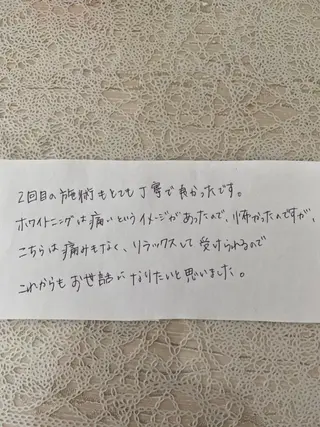 2回目の施術もとても丁寧で良かったです。
ホワイトニングは痛いというイメージがあったので、怖かったのですが、
こちらは痛みもなく、リラックスして受けられるので
これからもお世話になりたいと思いました。